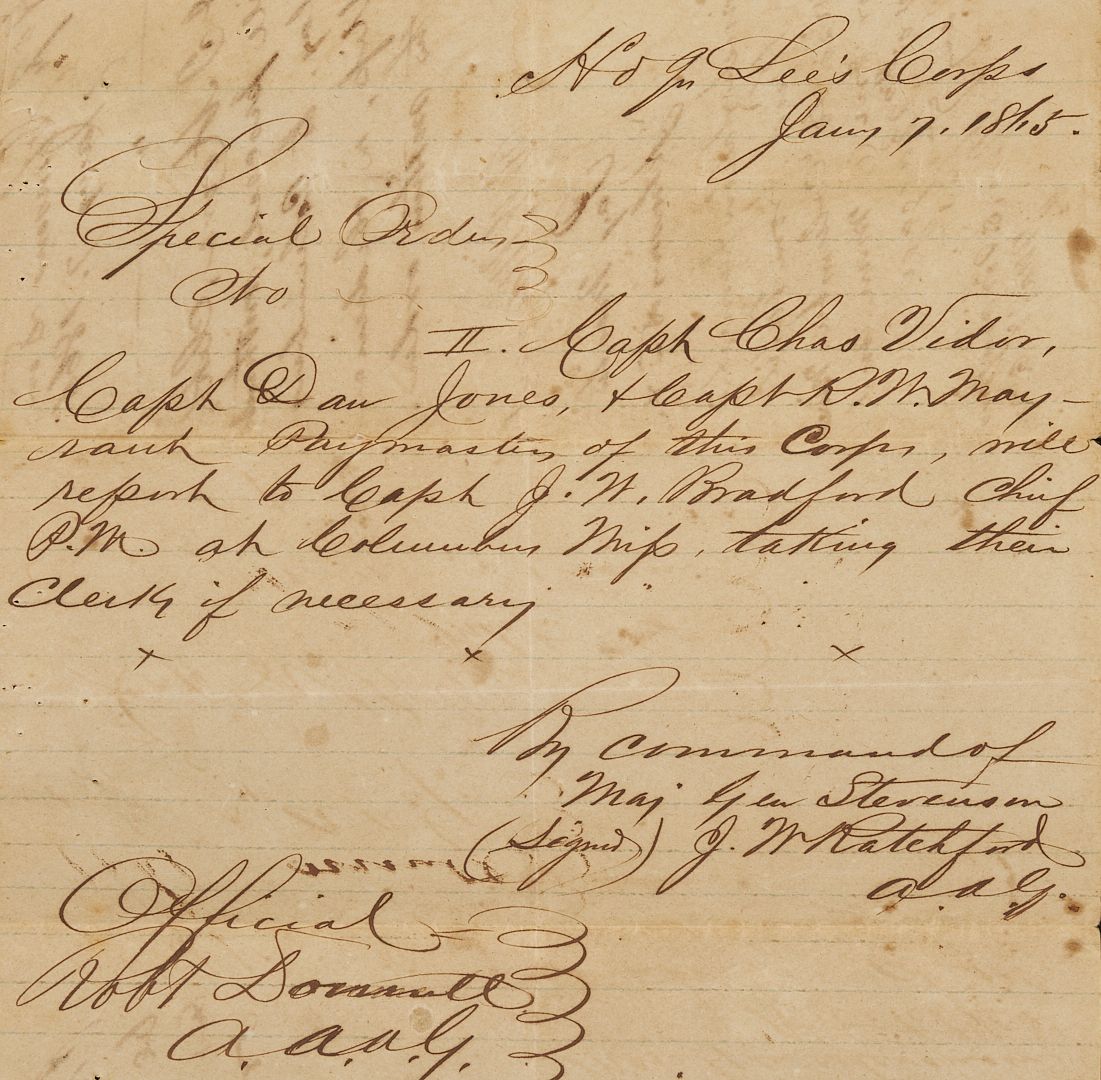 Hd Qrs Lee's Corps
Jany 7. 1865.
Special Orders
No
II. Capt Chas Vidor,
Capt Dan Jones, & Capt R. W. May-
rant Paymasters of this Corps, will
report to Capt J. W. Bradford Chief
P.M. at Columbus Miss, taking their
Clerks if necessary
x x x
By command of
Maj Gen Stevenson
(Signed) J. W Ratchford
A. A. G.
Official
Robt
A. A. A. G.